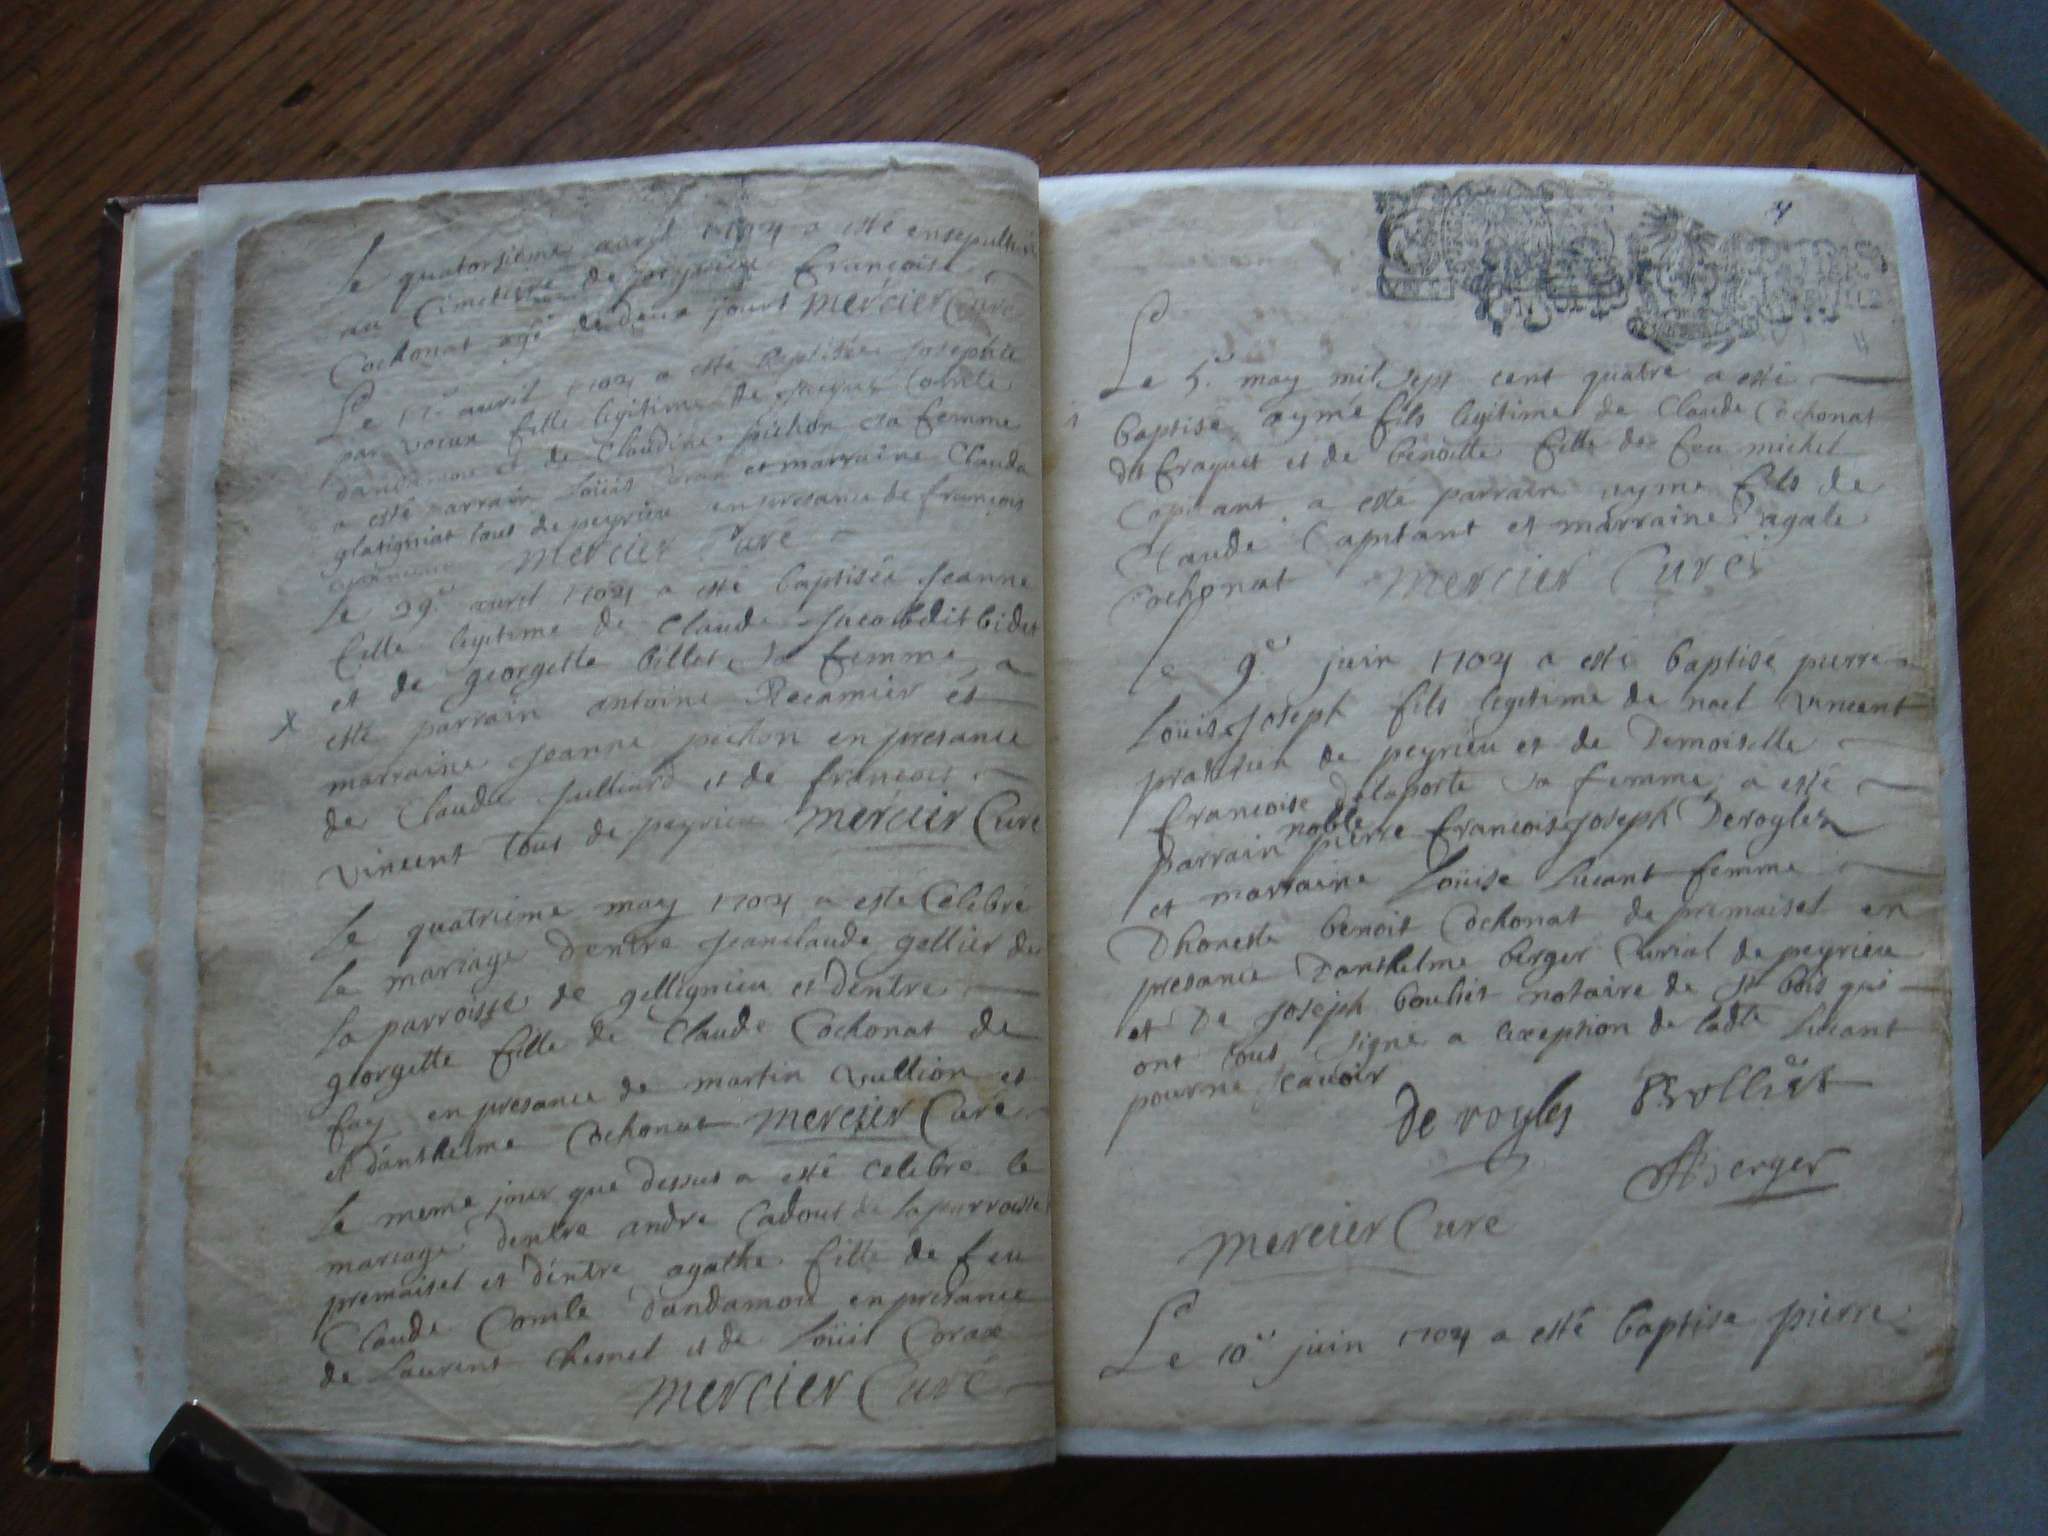 Le quatorsieme avril 1704 a esté ensepulturé
au Cimetiere de peyrieu Françoise
Cochonat agé de deux jours mercier Curé
Le 17.e avril 1704 a esté Baptisée Josephte
par fille legitime de Comte
dandamou et de Claudine pichon sa femme
a esté parrain Loüis et marraine Clauda
tous de peyrieu en presance de françois
mercier Curé
Le 29.e avril 1704 a esté baptisée Jeanne
fille legitime de Claude Jacob dit bidat
et de georgette billet sa femme a
esté parrain antoine Recamier et
X
marraine Jeanne pichon en presance
de Claude Julliard et de françois
vincent tous de peyrieu mercier Curé
Le quatrieme may 1704 a esté Celebré
le mariage dentre Jeanclaude gellier de
la parroisse de gellignieu et dentre
georgette fille de Claude Cochonat de
fay en presance de martin vullion et
et danthelme Cochonat mercier Curé
Le meme jour que dessus a esté celebré le
mariage dentre andre Cadout de la parroisse
premaisel et dentre agathe fille de feu
Claude Comte dandamou en presance
de Laurent Chesnel et de Loüis Corax
mercier Curé
4
Le 5.e may mil sept cent quatre a esté
baptisé aymé fils legitime de Claude Cochonat
dit fraquet et de benoitte fille de feu michel
Capitant a esté parrain ayme fils de
Claude Capitant et marraine agate
Cochonat mercier Curé
Le 9.e juin 1704 a esté baptisé pierre
Loüis Joseph fils legitime de noel vincent
praticien de peyrieu et de Demoiselle
françoise delaporte sa femme, a esté
noble
parrain pierre françois Joseph Deroyles
et marraine Loüise Lucant femme
Dhoneste benoit Cochonat de premaisel en
presance Danthelme berger Curial de peyrieu
et De Joseph boullet notaire de st bois qui
ont tous signé a lexeption de ladte Lucant
pour ne scavoir
de royles Bolliet
ABerger
mercier Curé
Le 10.e juin 1704 a esté baptisé pierre